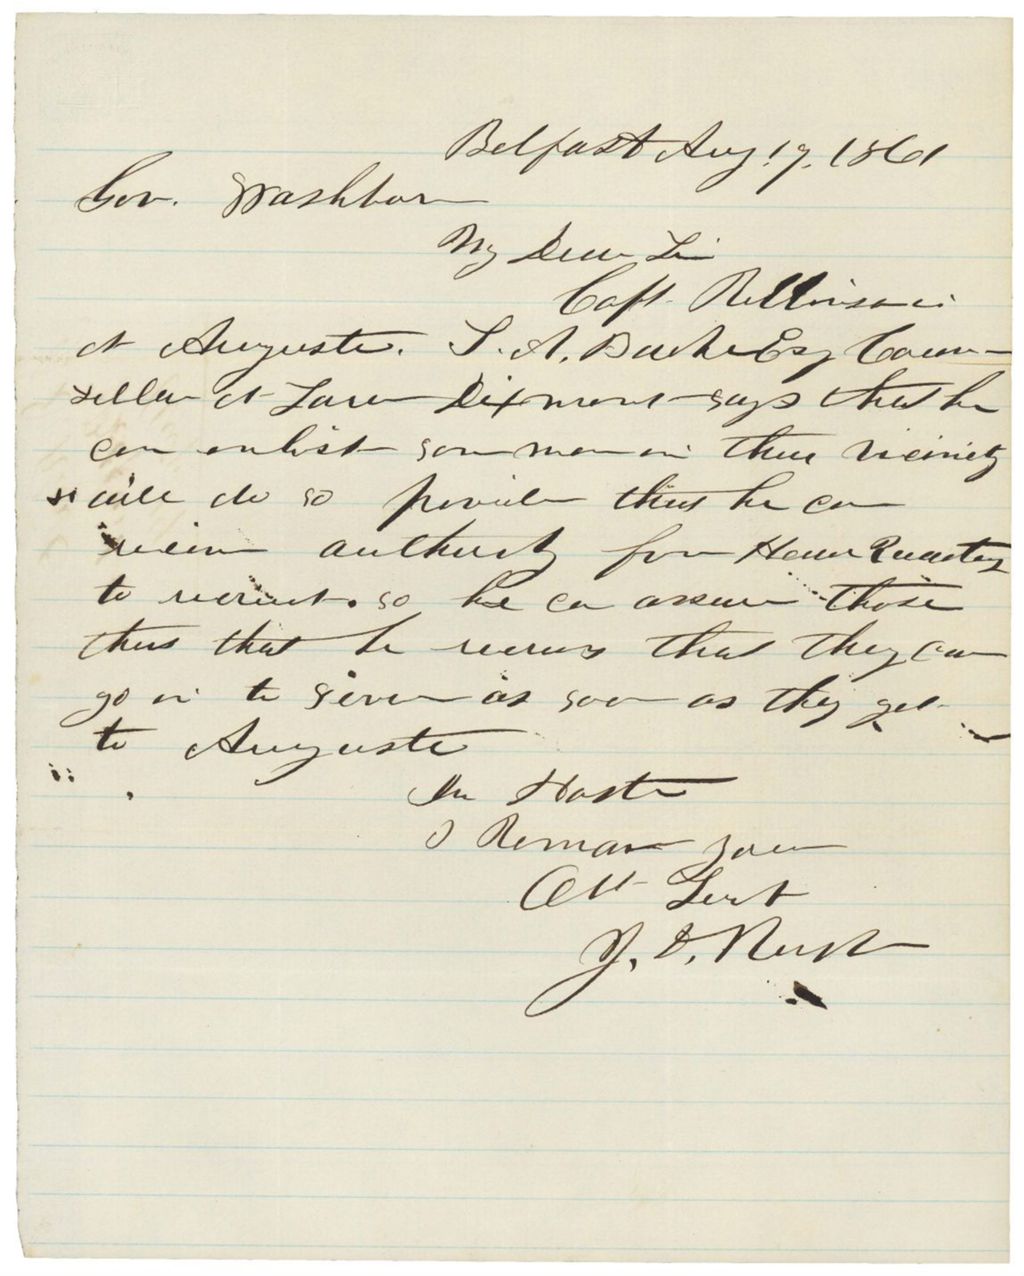 Belfast Aug. 19, 1861
Gov. Washburn
My Dear Sir
Capt. Robinson is
at Augusta. S. A. Burke Esq Coun-
sellor at Law Dixmont says that he
can enlist some men in their vicinity
& will do so provided that he can
receive authority from Head Quarters
to recruit. so he can assure those
that he receives that they can
go in to service as soon as they get
to Augusta
In Haste
I Remain your
Obt Servt
J. D. Rust